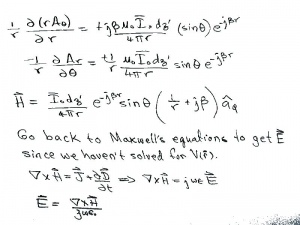 1/r ∂(rA_θ)/∂r = +jβ μ₀ I₀dz'/4πr (sinθ) e^-jβr
-1/r ∂A_r/∂θ = +1/r μ₀ I₀dz'/4πr sinθ e^-jβr
H̄ = I₀dz'/4πr e^-jβr sinθ (1/r + jβ) â_φ
Go back to Maxwell's equations to get Ē
since we haven't solved for V(r̄).
∇×H̄ = J̄ + ∂D̄/∂t ⇒ ∇×H̄ = jωεĒ
Ē = ∇×H̄/jωε₀